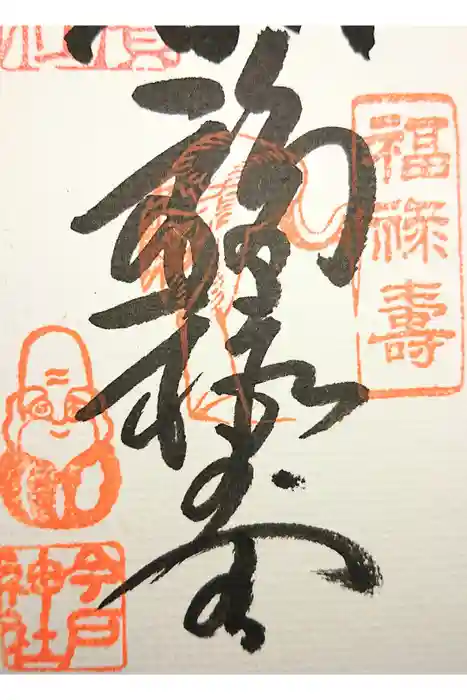 福禄寿
福禄壽
今戸
神社